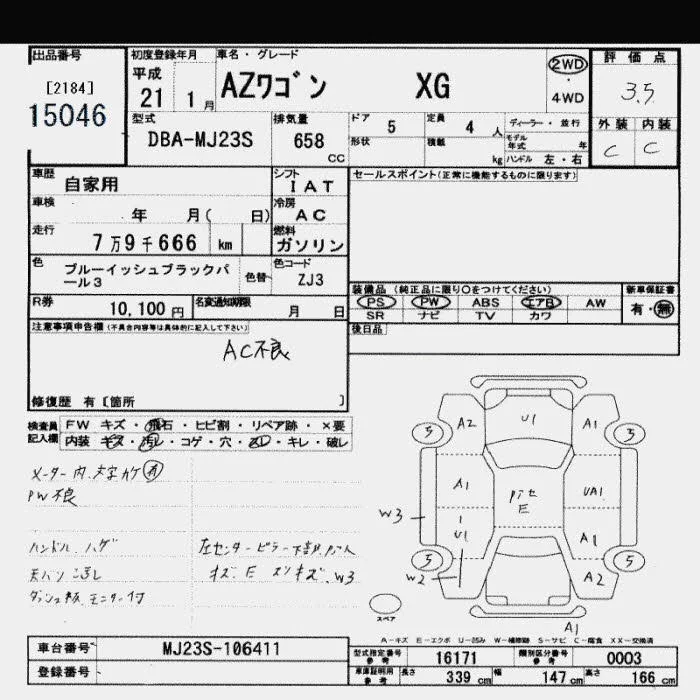 出品番号
[2184]
15046
初度登録年月
平成
21 1月
車名・グレード
AZワゴン XG
2WD
・
4WD
評価点
3.5
外装 内装
C C
型式
DBA-MJ23S
排気量
658
CC
ドア 5
形状
定員 4 人
積載 kg
ディーラー・並行
モデル年式 年
ハンドル 左・右
車歴
自家用
シフト
I A T
車検
年 月( 日)
冷房
A C
走行
7万9千666 km
燃料
ガソリン
色
ブルーイッシュブラックパール3
色替
色コード
ZJ3
R券
10,100円
名変通知期限
月 日
セールスポイント(正常に機能するものに限ります)
装備品 (純正品に限り○をつけてください)
PS PW ABS エアB AW
SR ナビ TV カワ
新車保証書
有・無
後日品
注意事項申告欄(不具合内容等は具体的に記入して下さい)
AC不良
修復歴 有[箇所 ]
検査員記入欄
FW キズ・飛石・ヒビ割・リペア跡・×要
内装 キズ・汚レ・コゲ・穴・スレ・キレ・破レ
メーター内,文字カケ有
PW不良
ハンドル ハゲ
天バリ 汚し
ダッシュ板,モニター付
左センターピラー下部
キズ.E スリキズ W3
A2 U1 A1
5 5
A1 UA1
W3
U1
E
A1
5 5
W2
A2
A1
スペア
A-キズ E-エクボ U-凹み W-補修跡 S-サビ C-腐食 XX-交換済
車台番号
MJ23S-106411
登録番号
型式指定番号
参考
16171
類別区分番号
参考
0003
車庫証明用
参考
長さ 339 cm 幅 147 cm 高さ 166 cm